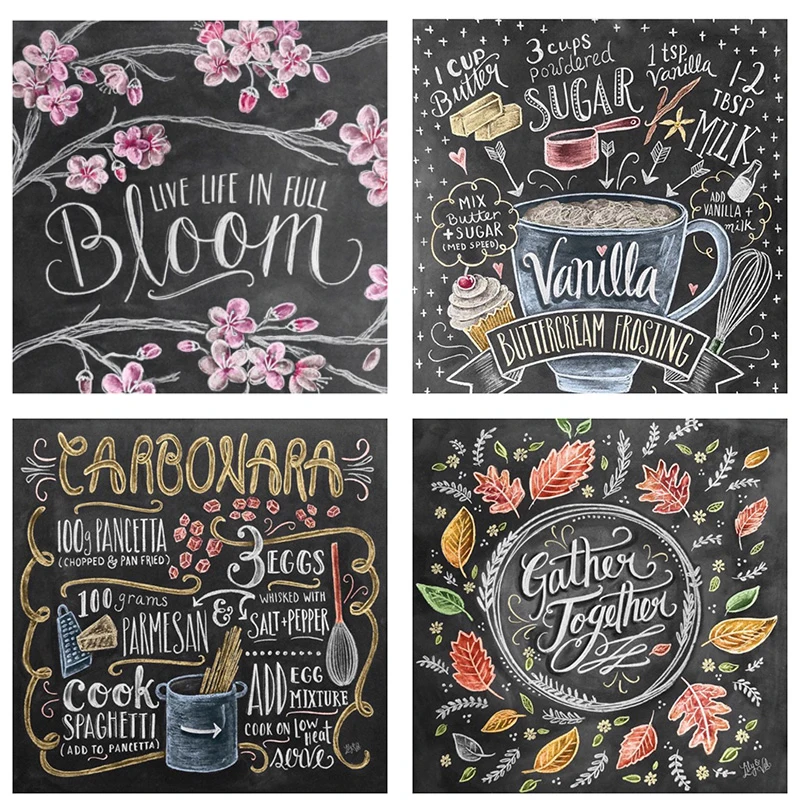 LIVE LIFE IN FULL
Bloom
1 CUP
Butter
3 cups
powdered
SUGAR
1 tsp.
Vanilla
1-2
TBSP
MILK
MIX
Butter
+ SUGAR
(MED SPEED)
ADD
VANILLA +
milk
Vanilla
BUTTERCREAM FROSTING
CARBONARA
100g PANCETTA
(CHOPPED & PAN FRIED)
3 EGGS
WHISKED WITH
SALT + PEPPER
&
100 grams
PARMESAN
cook
SPAGHETTI
(ADD TO PANCETTA)
ADD EGG
MIXTURE
COOK ON low
heat
serve
Lily & Val
Gather
Together
Lily & Val